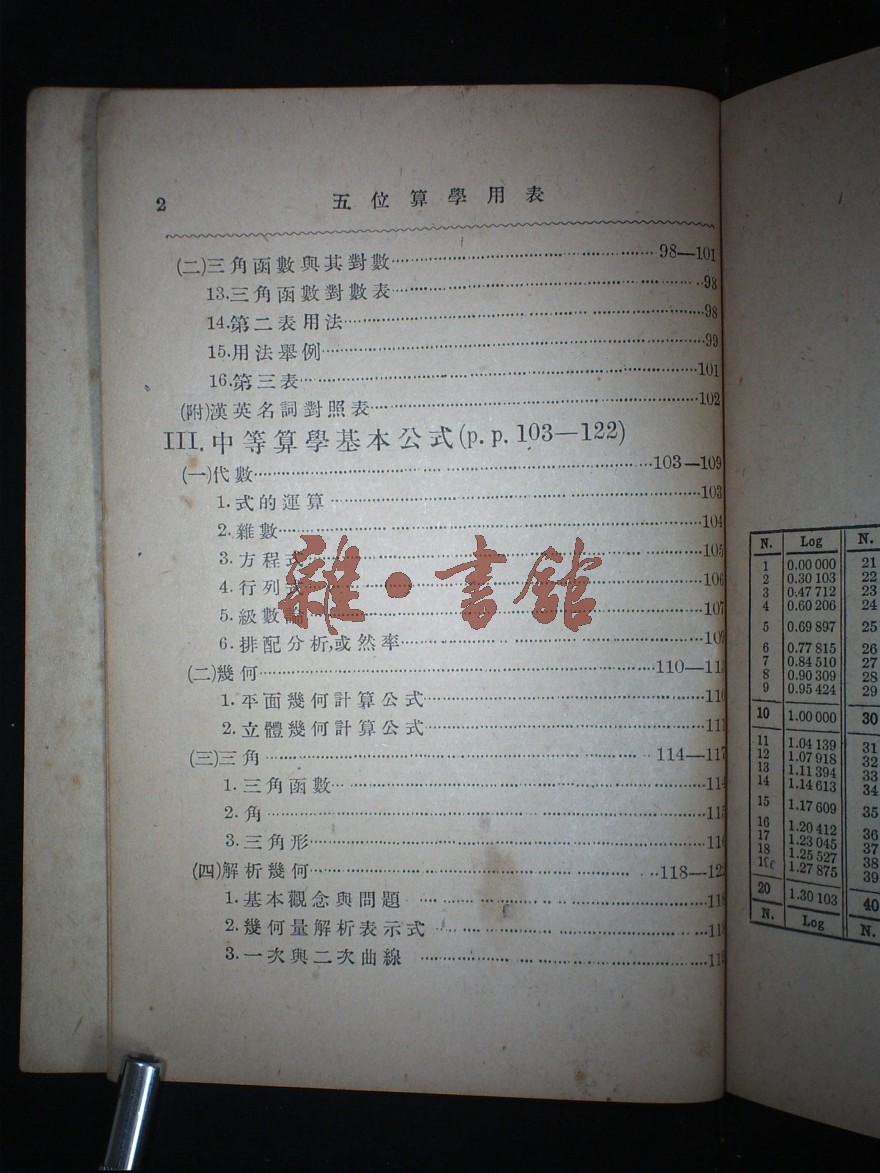 2 五位算學用表
(二)三角函數與其對數 98—101
13.三角函數對數表 98
14.第二表用法 98
15.用法舉例 99
16.第三表 101
(附)漢英名詞對照表 102
III.中等算學基本公式(p.p.103—122)
(一)代數 103—109
1.式的運算 103
2.雜數 104
3.方程式 105
4.行列式 106
5.級數論 107
6.排配分析,或然率 109
(二)幾何 110—11
1.平面幾何計算公式 110
2.立體幾何計算公式 111
(三)三角 114—117
1.三角函數 114
2.角 115
3.三角形 116
(四)解析幾何 118—12
1.基本觀念與問題 118
2.幾何量解析表示式 11
3.一次與二次曲線 11
雜·書館
N. Log N.
1 0.00 000 21
2 0.30 103 22
3 0.47 712 23
4 0.60 206 24
5 0.69 897 25
6 0.77 815 26
7 0.84 510 27
8 0.90 309 28
9 0.95 424 29
10 1.00 000 30
11 1.04 139 31
12 1.07 918 32
13 1.11 394 33
14 1.14 613 34
15 1.17 609 35
16 1.20 412 36
17 1.23 045 37
18 1.25 527 38
1.27 875 39
20 1.30 103 40
N. Log N.